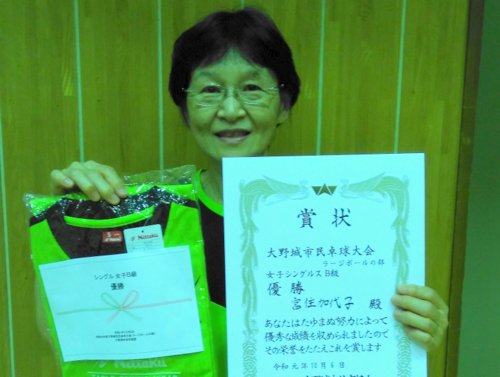 賞状
大野城市民卓球大会
ラージボールの部
女子シングルスB級
優勝
宮住加代子 殿
あなたはたゆまぬ努力によって
優秀な成績を収められましたので
その栄誉をたたえこれを賞します
令和元年10月6日
Nittaku
シングル 女子B級
優勝
Nittaku